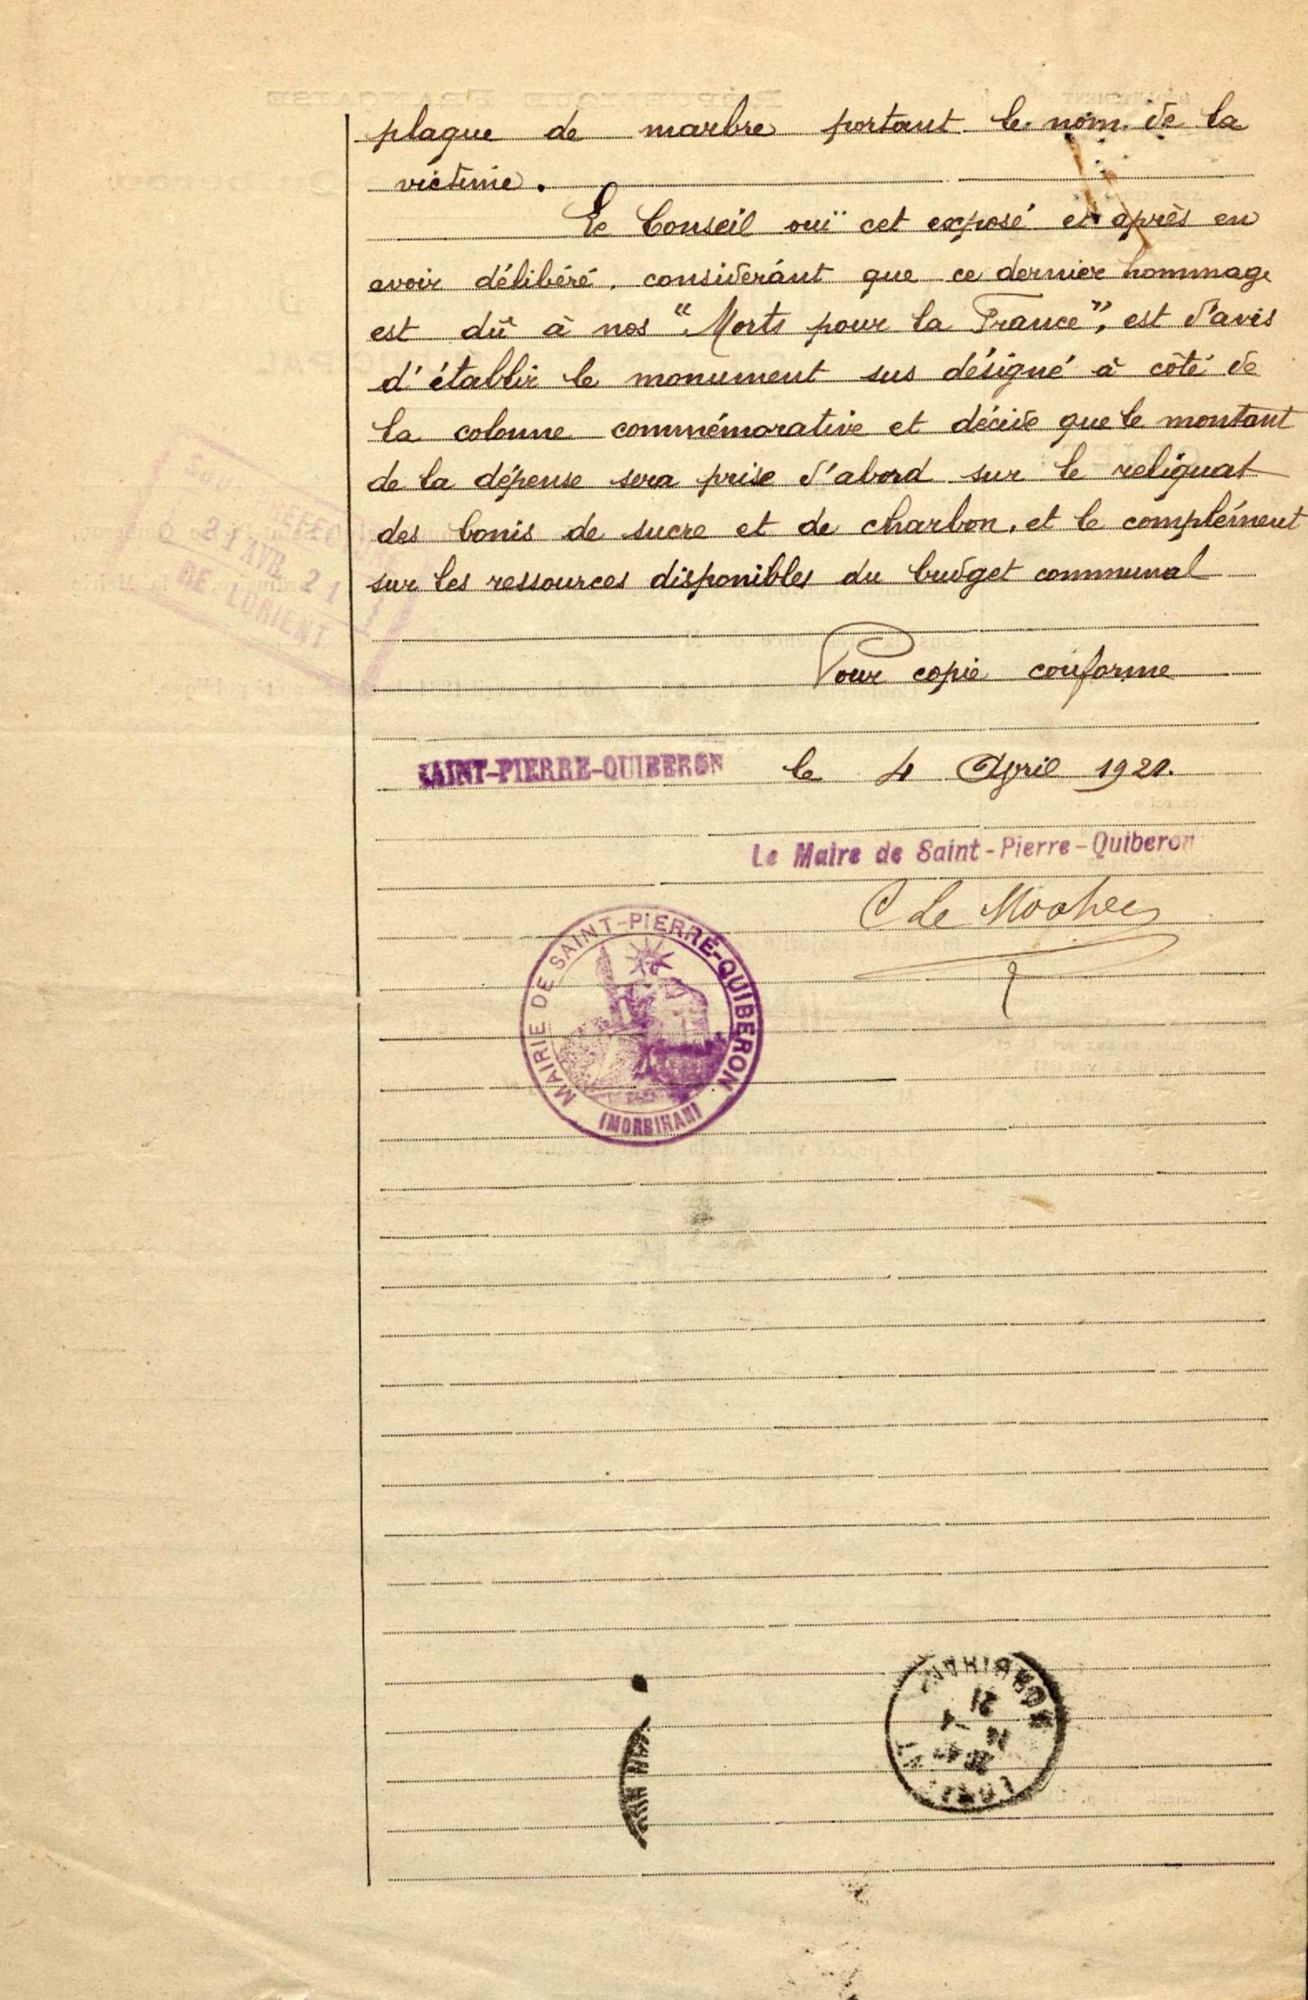 plaque de marbre portant le nom de la
victime.
Le Conseil ouï cet exposé et après en
avoir délibéré, considérant que ce dernier hommage
est dû à nos "Morts pour la France", est d'avis
d'établir le monument sus désigné à côté de
la colonne commémorative et décide que le montant
de la dépense sera prise d'abord sur le reliquat
des bonis de sucre et de charbon, et le complément
sur les ressources disponibles du budget communal
Pour copie conforme
SAINT-PIERRE-QUIBERON le 4 April 1921.
Le Maire de Saint-Pierre-Quiberon
MAIRIE DE SAINT-PIERRE-QUIBERON
(MORBIHAN)
21 AVR. 21
DE LORIENT
MORBIHAN
21